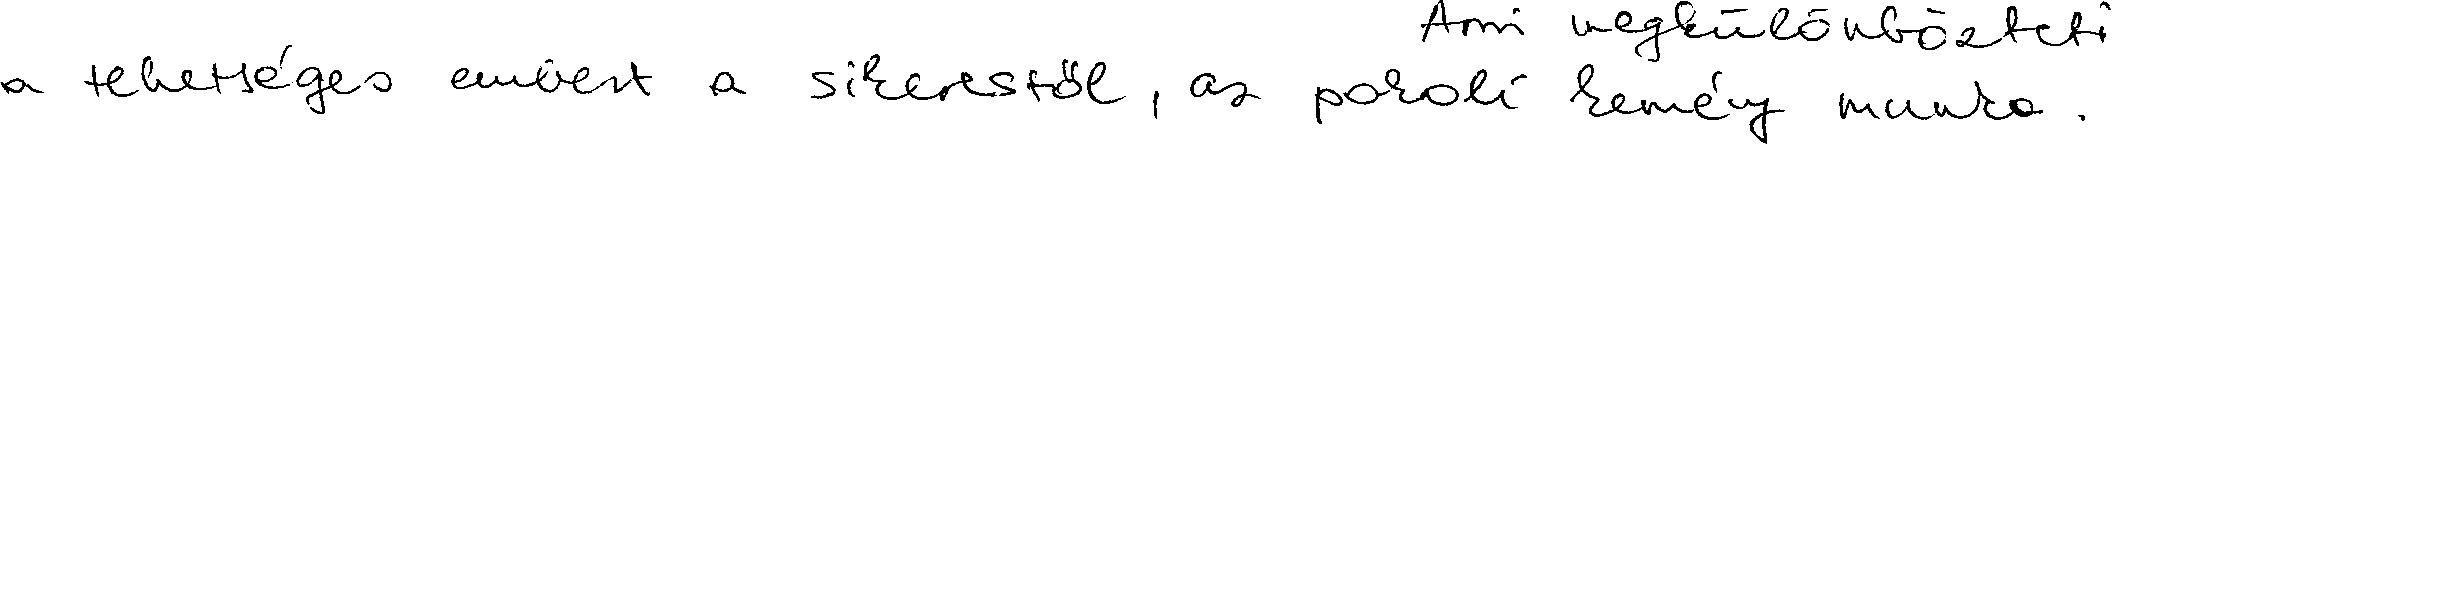 Ami megkülönbözteti
a tehetséges embert a sikerestől, az pokoli kemény munka.